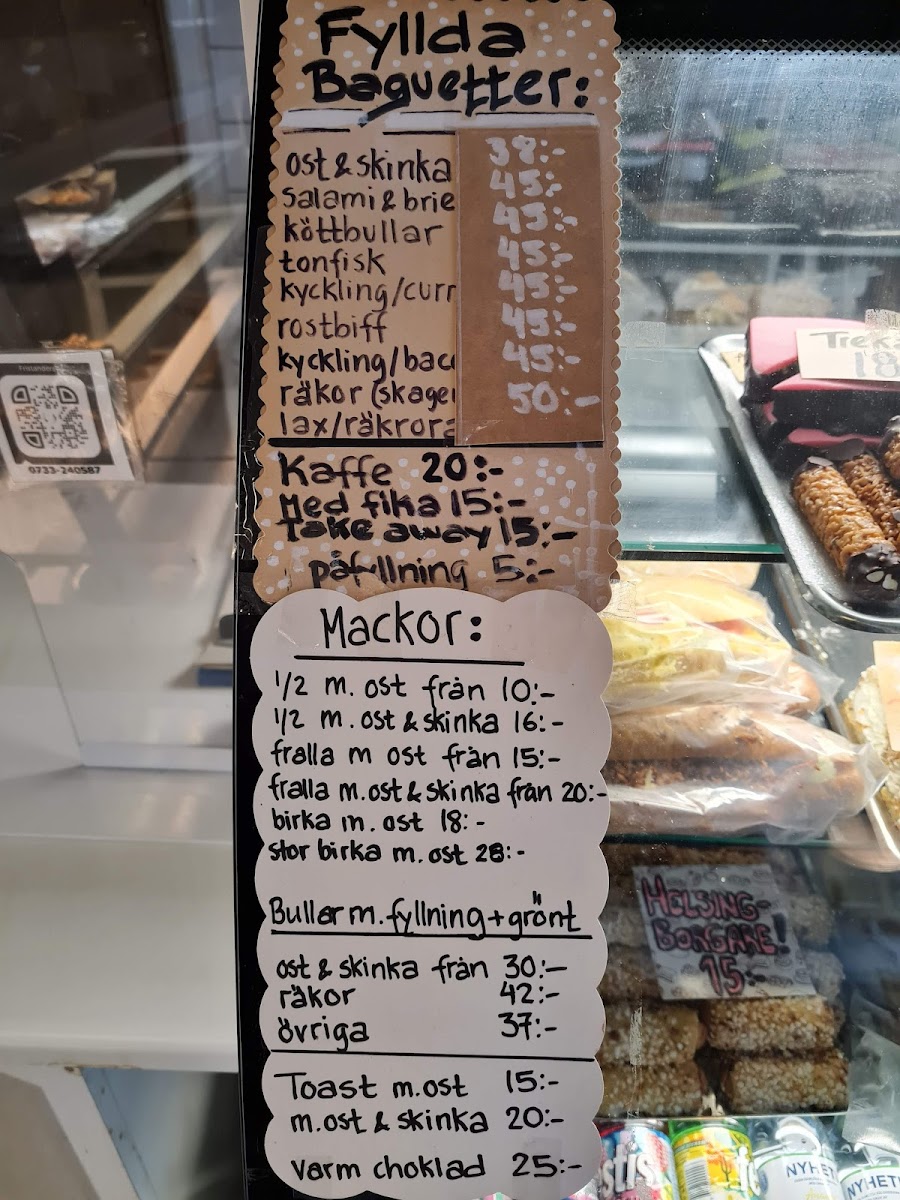 Fyllda
Baguetter:
ost & skinka 38:-
Salami & brie 45:-
köttbullar 45:-
tonfisk 45:-
kyckling/curr 45:-
rostbiff 45:-
kyckling/bac 45:-
räkor (skage 50:-
lax/räkrora
Kaffe 20:-
Med fika 15:-
Take away 15:-
påfyllning 5:-
Mackor:
1/2 m. ost från 10:-
1/2 m. ost & skinka 16:-
fralla m ost från 15:-
fralla m.ost & skinka från 20:-
birka m. ost 18:-
stor birka m. ost 28:-
Bullar m. fyllning + grönt
ost & skinka från 30:-
räkor 42:-
övriga 37:-
Toast m.ost 15:-
m.ost & skinka 20:-
varm choklad 25:-
0733-240587
Treka
18
HELSING-
BORGARE!
15:-
NYHET
NYHET